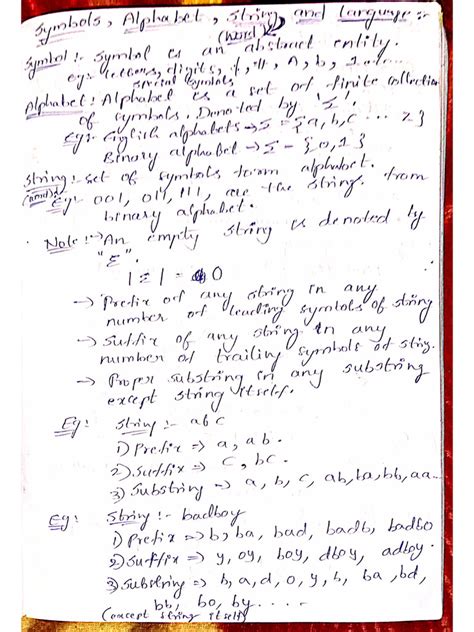 Symbols, Alphabet, String and Language :-
(word)
Symbol :- Symbol is an abstract entity.
eg:- letters, digits, A, b, 1....
special symbols
Alphabet : Alphabet is a set of finite collection
of symbols. Denoted by 'Σ'.
Eg:- English alphabets → Σ = {a, b, c ... z}
Binary alphabet - Σ - {0, 1}
String :- set of symbols form alphabet.
(word)
Eg:- 001, 011, 111, are the string. from
binary alphabet.
Note :- → An empty string is denoted by
"Ɛ".
|Ɛ| = 0
→ Prefix of any string in any
number of leading symbols of string
→ Suffix of any string in any
number of trailing symbols of stig.
→ Proper substring in any substring
except string itself.
Eg: String :- abc
1) Prefix ⇒ a, ab.
2) Suffix ⇒ c, bc.
3) Substring ⇒ a, b, c, ab, ba, bb, aa...
Eg: String :- badboy
1) Prefix ⇒ b, ba, bad, badb, badbo
2) Suffix ⇒ y, oy, boy, dboy, adboy.
3) Substring ⇒ b, a, d, o, y, b, ba, bd,
bb, bo, by.....
(except string itself)